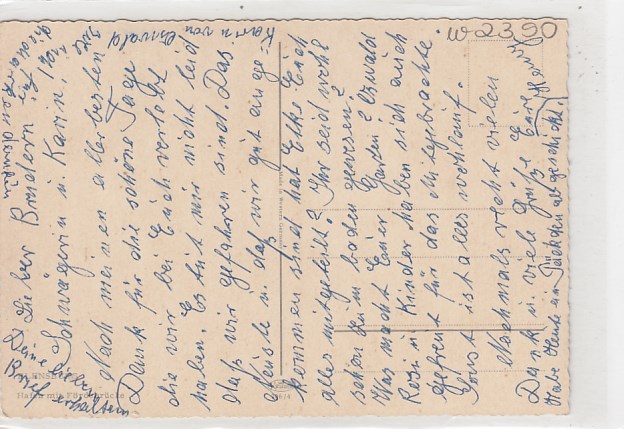 Lieber Bruder
Schwägerin u. Karin!
Nach meinen allerbesten
Dank für die schöne Tage
die wir bei Euch verlebt
haben. Es tut mir nicht leid
daß wir gefahren sind. Das
Neuste u. daß wir gut ange
kommen sind hat Elke Euch
alles mitgeteilt? Ihr seid wohl
schon beim baden gewesen?
Was macht Euer Garten? Oswald
Rosi u. Kinder haben sich auch
gefreut für das Mitgebrachte.
Sonst ist alles wohlauf.
Nochmals recht vielen
Dank u. viele Grüße Eure
Habe Heute ein Päckchen abgeschickt.
Deine
Brief
erhalten
Karin von
Oswald
W2390
Hafen mit Fördebrücke